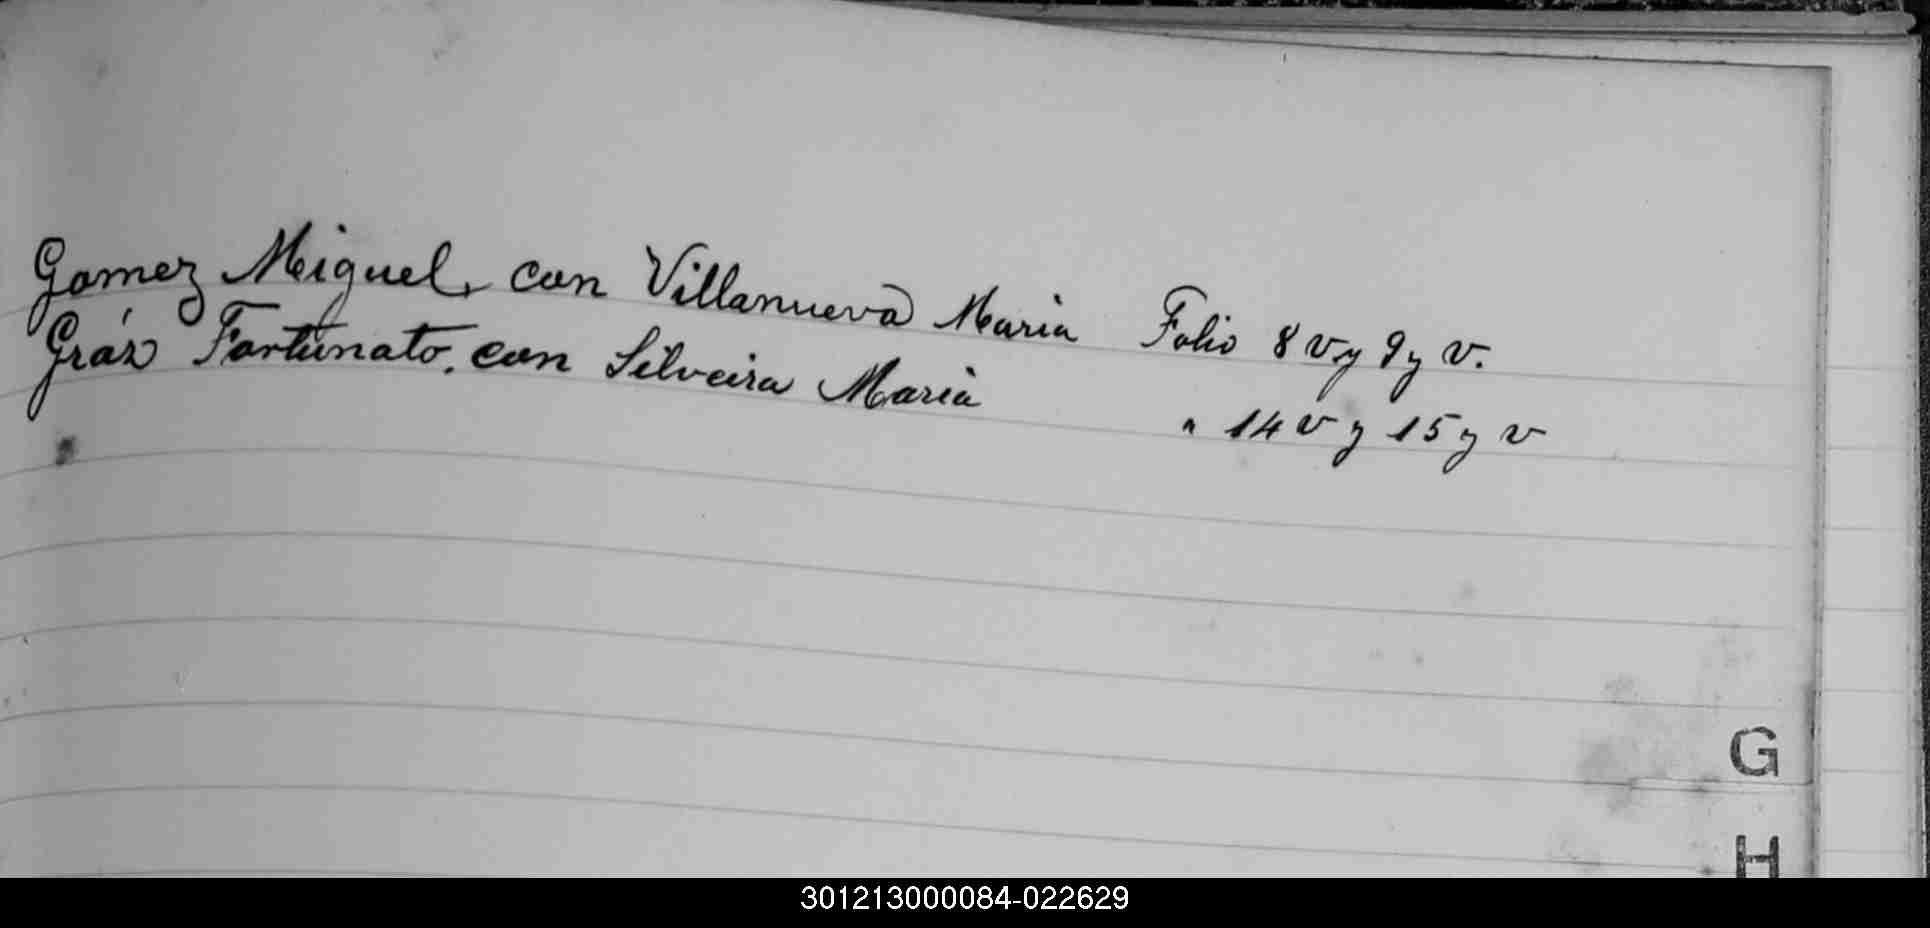 Gomez Miguel, con Villanueva Maria Folio 8 v y 9 y v.
Gráz Fortunato, con Silveira Maria " 14 v y 15 y v
G
H
301213000084-022629